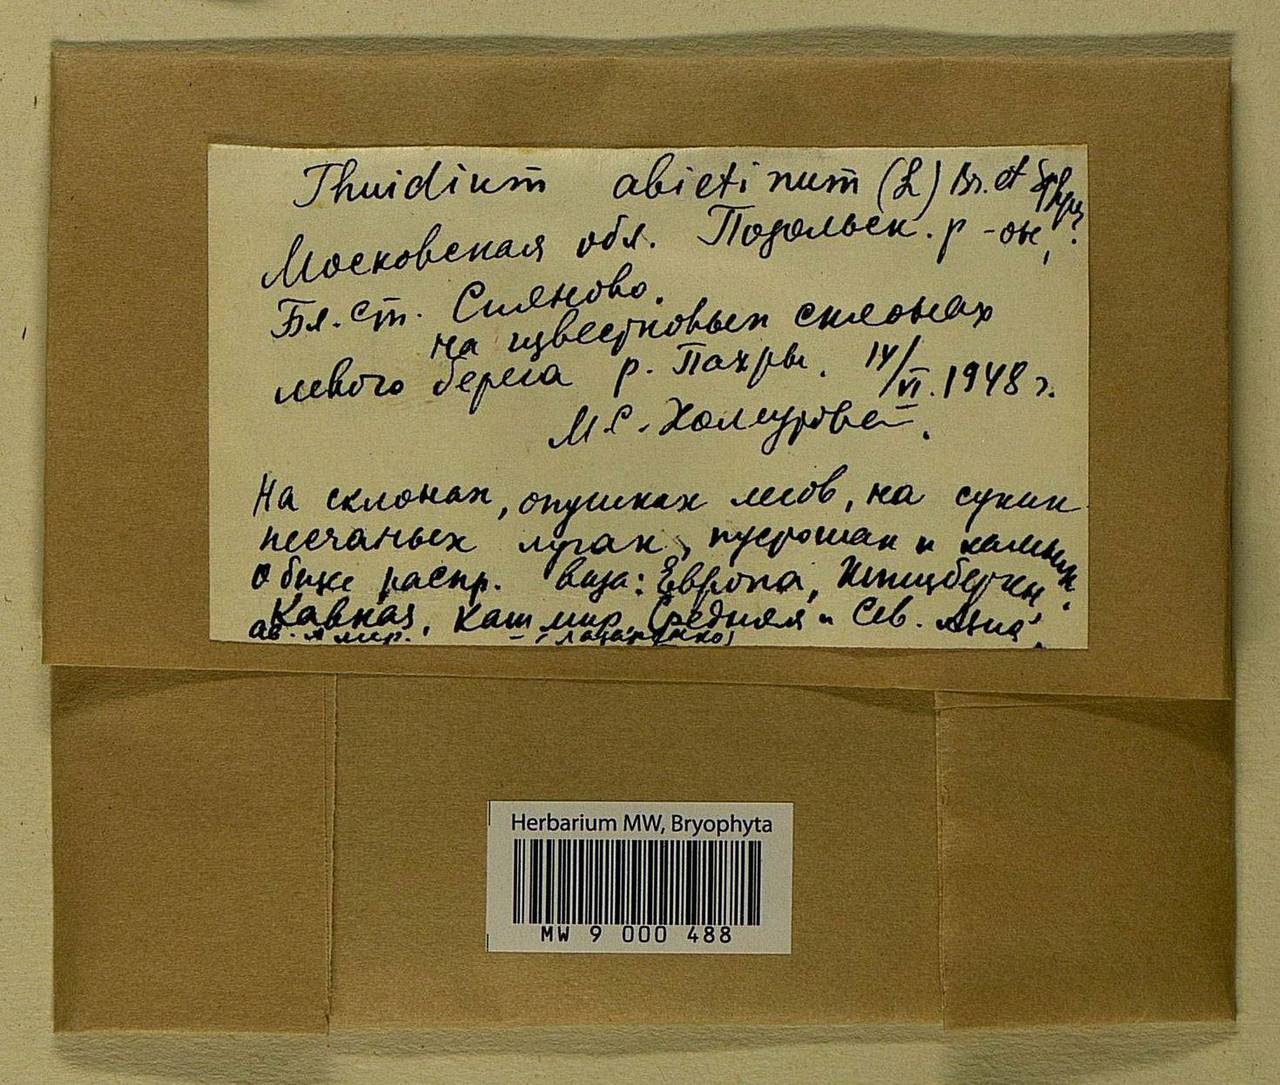 Thuidium abietinum (L) Br. et
Московская обл. Подольск. р-он,
Бл. ст. Сияново.
на известковых склонах
левого берега р. Пахры. 14/VI.1948 г.
М.С. Хомутовой.
На склонах, опушках лесов, на сухих
песчаных лугах, пустошах и камнях.
Общее распр. вида: Европа, Шпицберген,
Кавказ, Кашмир, Средняя и Сев. Азия,
Herbarium MW, Bryophyta
MW 9 000 488